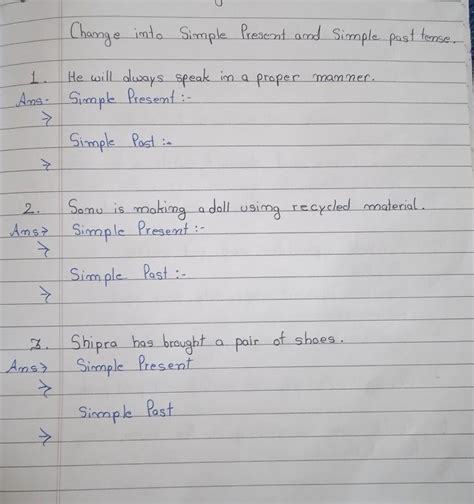 Change into Simple Present and Simple past tense.
1. He will always speak in a proper manner.
Ans- Simple Present :-
⇒
Simple Past :-
⇒
2. Sonu is making a doll using recycled material.
Ans⇒ Simple Present :-
⇒
Simple Past :-
⇒
3. Shipra has brought a pair of shoes.
Ans⇒ Simple Present
⇒
Simple Past
⇒